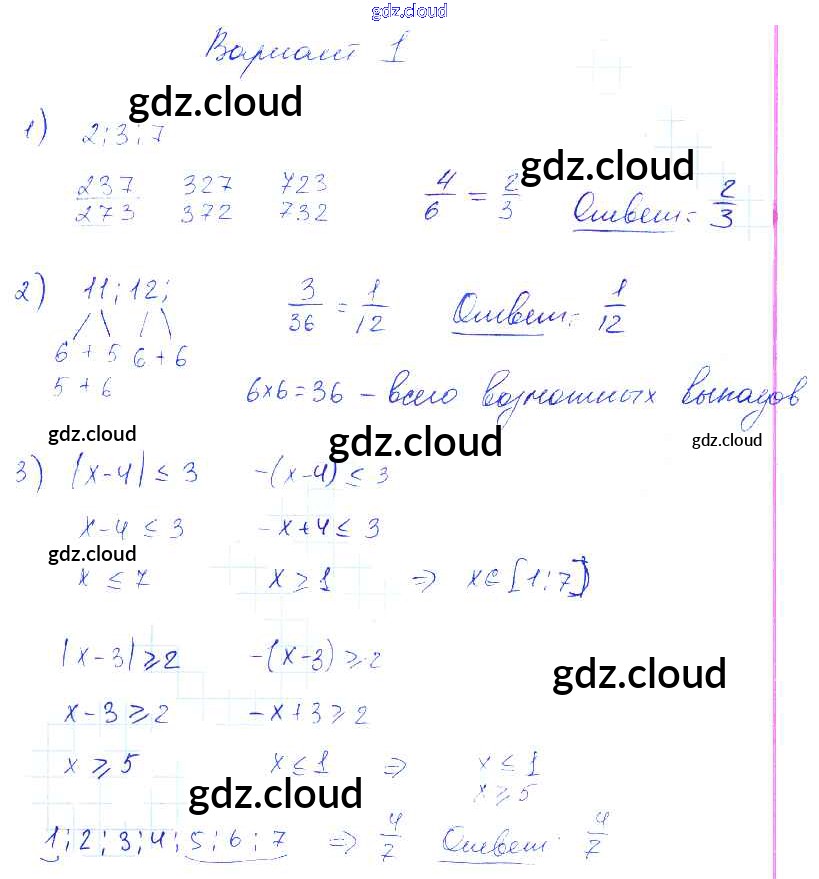 gdz.cloud
Вариант 1
gdz.cloud
1) 2; 3; 7
gdz.cloud
237 327 723
273 372 732
4/6 = 2/3 Ответ: 2/3
2) 11; 12; 3/36 = 1/12 Ответ: 1/12
6 + 5 6 + 6
5 + 6 6×6=36 – всего возможных выпадов
gdz.cloud gdz.cloud gdz.cloud
3) |x-4| ≤ 3 -(x-4) ≤ 3
x-4 ≤ 3 -x+4 ≤ 3
gdz.cloud
x ≤ 7 x ≥ 1 ⇒ x∈[1;7]
|x-3| ≥ 2 -(x-3) ≥ 2
gdz.cloud
x-3 ≥ 2 -x+3 ≥ 2
x ≥ 5 x ≤ 1 ⇒ x ≤ 1
x ≥ 5
gdz.cloud
1; 2; 3; 4; 5; 6; 7 ⇒ 4/7 Ответ: 4/7